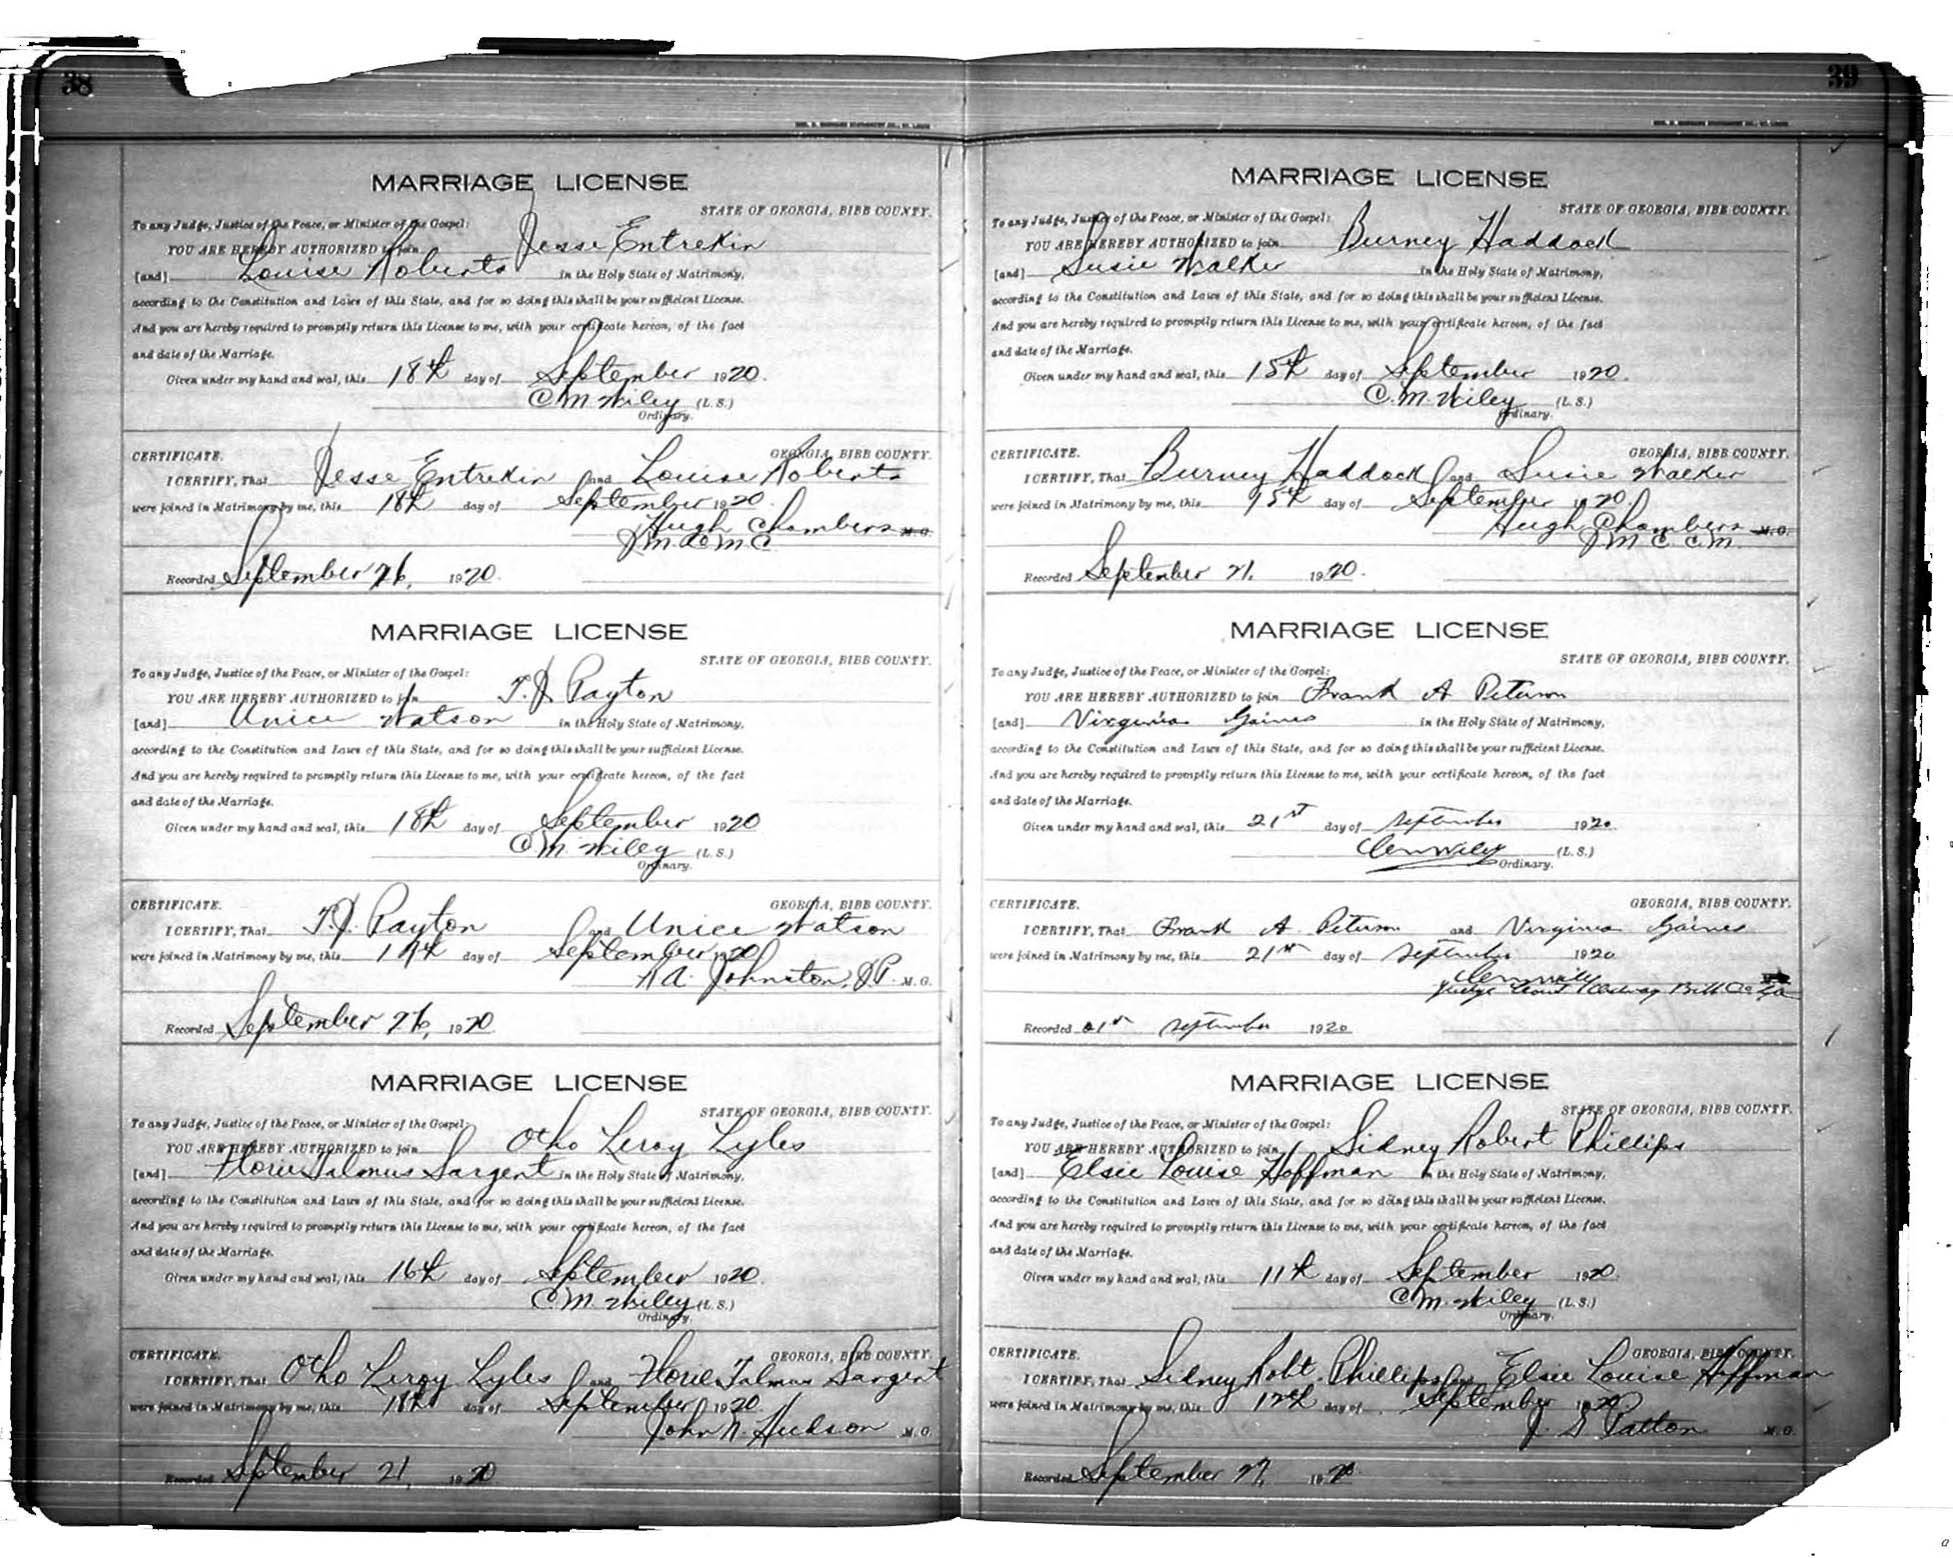 38
MARRIAGE LICENSE
STATE OF GEORGIA, BIBB COUNTY.
To any Judge, Justice of the Peace, or Minister of the Gospel:
YOU ARE HEREBY AUTHORIZED to join Jesse Entrekin
[and] Louise Roberts in the Holy State of Matrimony,
according to the Constitution and Laws of this State, and for so doing this shall be your sufficient License.
And you are hereby required to promptly return this License to me, with your certificate hereon, of the fact
and date of the Marriage.
Given under my hand and seal, this 18th day of September 1920.
C.M. Wiley (L.S.)
Ordinary.
CERTIFICATE. GEORGIA, BIBB COUNTY.
I CERTIFY, That Jesse Entrekin and Louise Roberts
were joined in Matrimony by me, this 18th day of September 1920.
Hugh Chambers M.G.
Recorded September 26, 1920.
MARRIAGE LICENSE
STATE OF GEORGIA, BIBB COUNTY.
To any Judge, Justice of the Peace, or Minister of the Gospel:
YOU ARE HEREBY AUTHORIZED to join T.J. Payton
[and] Unice Watson in the Holy State of Matrimony,
according to the Constitution and Laws of this State, and for so doing this shall be your sufficient License.
And you are hereby required to promptly return this License to me, with your certificate hereon, of the fact
and date of the Marriage.
Given under my hand and seal, this 18th day of September 1920
C.M. Wiley (L.S.)
Ordinary.
CERTIFICATE. GEORGIA, BIBB COUNTY.
I CERTIFY, That T.J. Payton and Unice Watson
were joined in Matrimony by me, this 19th day of September 1920
Johnston, J.P. M.G.
Recorded September 26, 1920
MARRIAGE LICENSE
STATE OF GEORGIA, BIBB COUNTY.
To any Judge, Justice of the Peace, or Minister of the Gospel:
YOU ARE HEREBY AUTHORIZED to join Otho Leroy Lyles
[and] Talmus Sargent in the Holy State of Matrimony,
according to the Constitution and Laws of this State, and for so doing this shall be your sufficient License.
And you are hereby required to promptly return this License to me, with your certificate hereon, of the fact
and date of the Marriage.
Given under my hand and seal, this 16th day of September 1920.
C.M. Wiley (L.S.)
Ordinary.
CERTIFICATE. GEORGIA, BIBB COUNTY.
I CERTIFY, That Otho Leroy Lyles and Talmus Sargent
were joined in Matrimony by me, this 18th day of September 1920.
John N. Hudson M.G.
Recorded September 21, 1920
39
MARRIAGE LICENSE
STATE OF GEORGIA, BIBB COUNTY.
To any Judge, Justice of the Peace, or Minister of the Gospel:
YOU ARE HEREBY AUTHORIZED to join Burney Haddock
[and] Susie Walker in the Holy State of Matrimony,
according to the Constitution and Laws of this State, and for so doing this shall be your sufficient License.
And you are hereby required to promptly return this License to me, with your certificate hereon, of the fact
and date of the Marriage.
Given under my hand and seal, this 15th day of September 1920.
C.M. Wiley (L.S.)
Ordinary.
CERTIFICATE. GEORGIA, BIBB COUNTY.
I CERTIFY, That Burney Haddock and Susie Walker
were joined in Matrimony by me, this 15th day of September 1920.
Hugh Chambers M.G.
Recorded September 21, 1920.
MARRIAGE LICENSE
STATE OF GEORGIA, BIBB COUNTY.
To any Judge, Justice of the Peace, or Minister of the Gospel:
YOU ARE HEREBY AUTHORIZED to join Frank A Peterson
[and] Virginia Gaines in the Holy State of Matrimony,
according to the Constitution and Laws of this State, and for so doing this shall be your sufficient License.
And you are hereby required to promptly return this License to me, with your certificate hereon, of the fact
and date of the Marriage.
Given under my hand and seal, this 21st day of September 1920.
CM Wiley (L.S.)
Ordinary.
CERTIFICATE. GEORGIA, BIBB COUNTY.
I CERTIFY, That Frank A. Peterson and Virginia Gaines
were joined in Matrimony by me, this 21st day of September 1920
CM Wiley
Judge Court Bibb Co Ga
Recorded 21st September 1920
MARRIAGE LICENSE
STATE OF GEORGIA, BIBB COUNTY.
To any Judge, Justice of the Peace, or Minister of the Gospel:
YOU ARE HEREBY AUTHORIZED to join Sidney Robert Phillips
[and] Elsie Louise Hoffman in the Holy State of Matrimony,
according to the Constitution and Laws of this State, and for so doing this shall be your sufficient License.
And you are hereby required to promptly return this License to me, with your certificate hereon, of the fact
and date of the Marriage.
Given under my hand and seal, this 11th day of September 1920.
C.M. Wiley (L.S.)
Ordinary.
CERTIFICATE. GEORGIA, BIBB COUNTY.
I CERTIFY, That Sidney Robt. Phillips and Elsie Louise Hoffman
were joined in Matrimony by me, this 12th day of September 1920
J. S. Patton M.G.
Recorded September 27, 1920